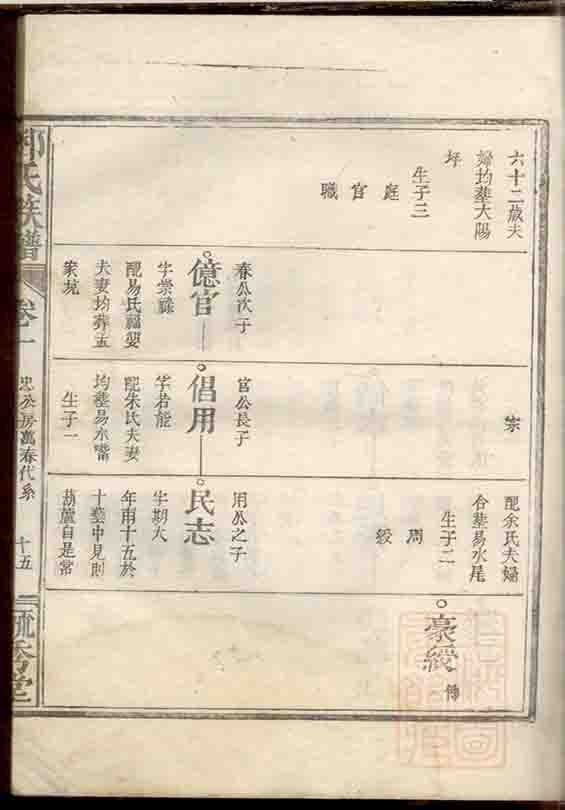 六十二歲夫
婦均塟大陽
坪
生子三
庭官職
春公次子
億官
字崇祿
配易氏福嬰
夫妻均葬五
家坑
宗
官公長子
倡用
字若能
配朱氏夫妻
均塟易水嘴
生子一
配余氏夫婦
合塟易水尾
生子二
周綬
用公之子
民志
字期大
年甫十五於
十塟中見則
葫蘆自是常
豪經
傳
氏族譜
卷一
忠公房萬春代系
十五
毓秀堂